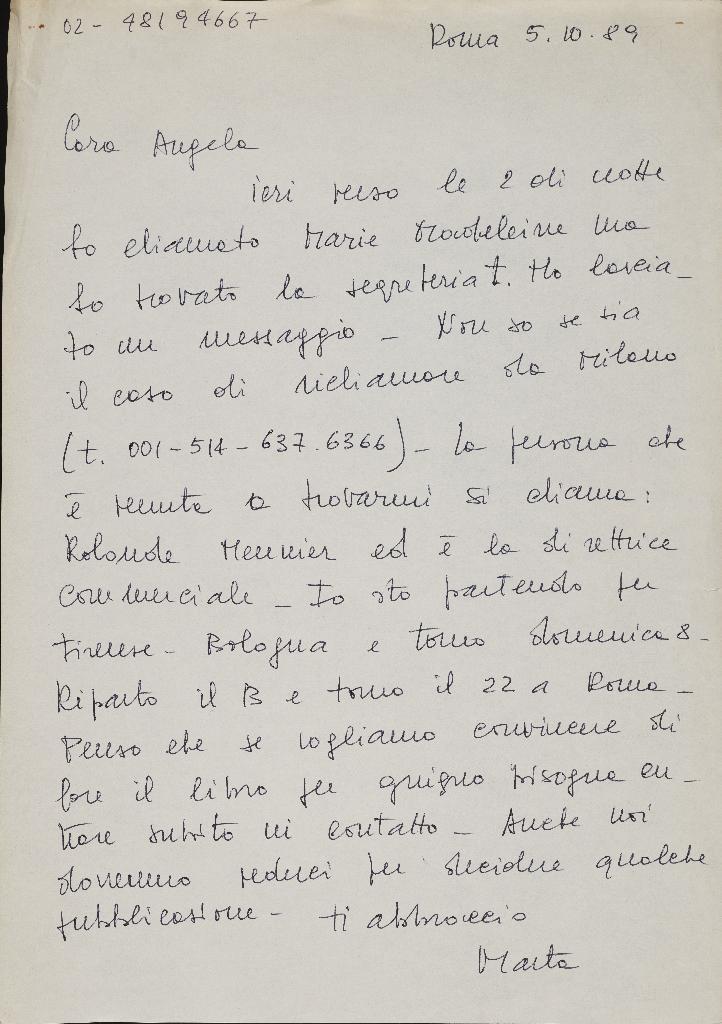 02 - 48194667
Roma 5.10.89
Cara Angela
ieri verso le 2 di notte
ho chiamato Marie Madeleine ma
ho trovato la segreteria t. Ho lascia-
to un messaggio - Non so se sia
il caso di richiamare da Milano
(t. 001-514-637.6366) - La persona che
è venuta a trovarmi si chiama:
Rolande Meunier ed è la direttrice
commerciale - Io sto partendo per
Firenze - Bologna e torno domenica 8 -
Riparto il 13 e torno il 22 a Roma -
Penso che se vogliamo convincere di
fare il libro per giugno bisogna en-
trare subito in contatto - Anche noi
dovremmo vederci per decidere qualche
pubblicazione - ti abbraccio
Marta